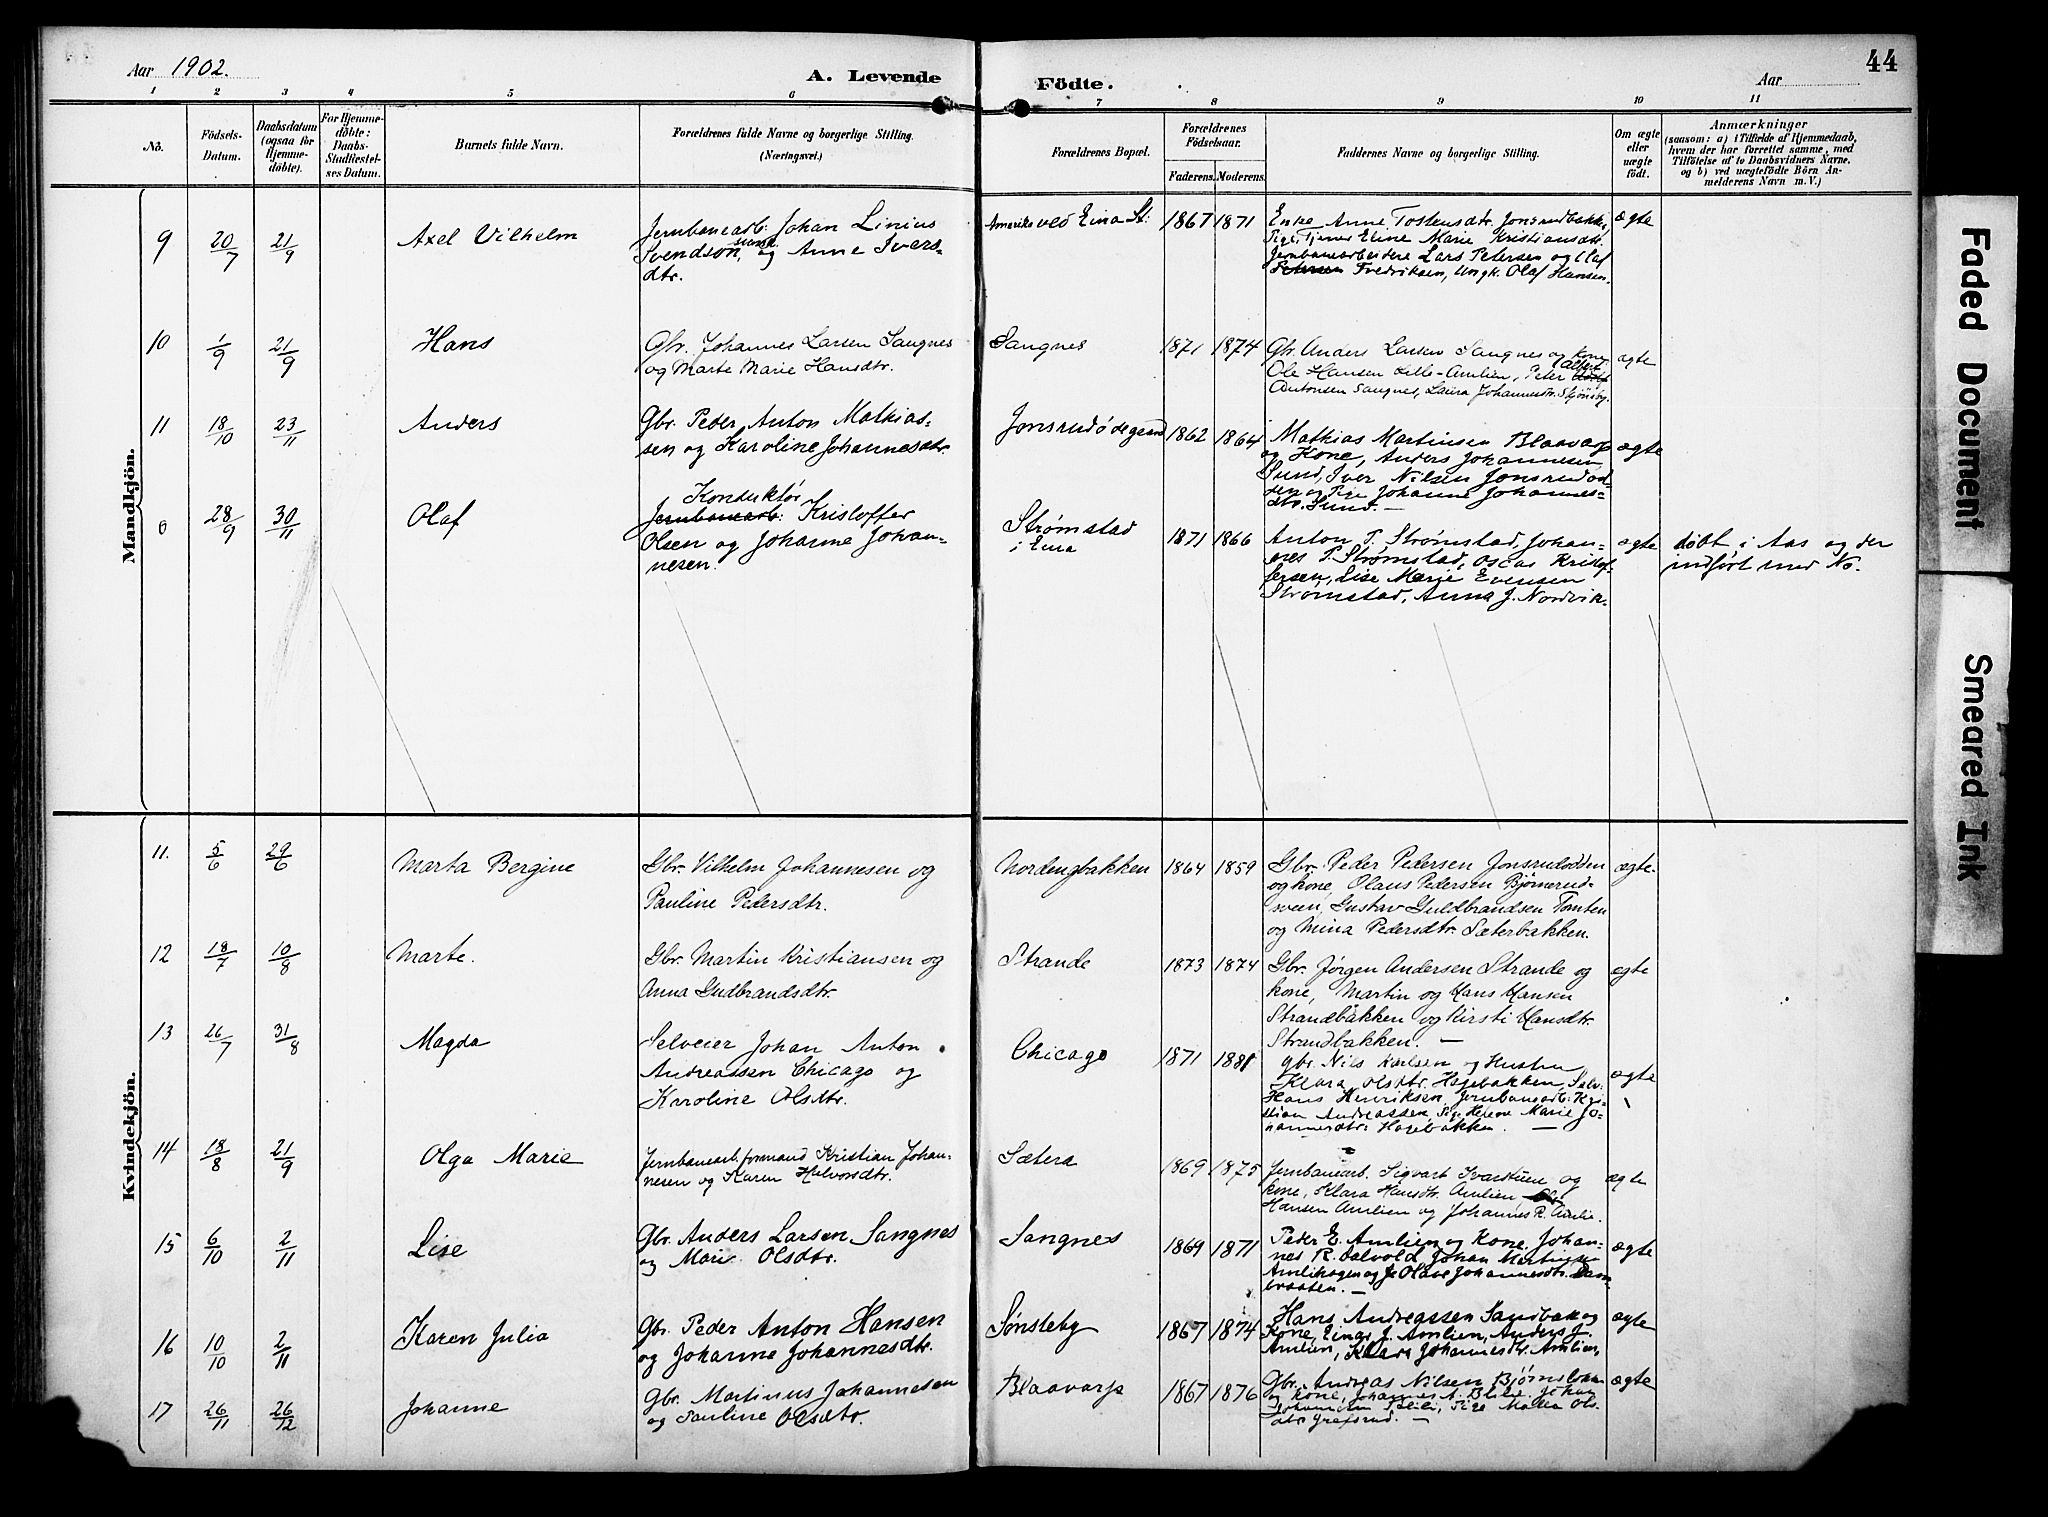 Aar 1902.
A. Levende
Födte.
Aar
44
1 2 3 4 5 6 7 8 9 10 11
No.
Födsels-
Datum.
Daabsdatum
(ogsaa for
Hjemme-
døbte).
For Hjemme-
døbte:
Daabs-
Stadfæstel-
ses Datum.
Barnets fulde Navn.
Forældrenes fulde Navne og borgerlige Stilling.
(Næringsvei.)
Forældrenes Bopæl.
Forældrenes
Födselsaar.
Faderens. Moderens.
Faddernes Navne og borgerlige Stilling.
Om ægte
eller
uægte
födt.
Anmærkninger
(saasom: a) i Tilfælde af Hjemmedaab,
hvem der har forrettet samme, med
Tilföielse af to Daabsvidners Navne,
og b) ved uægtefödte Börn An-
melderens Navn m. V.)
Mandkjön.
9 20/7 21/9 Axel Vilhelm
Jernbanearb. Johan Linius
Svendson, og Anne Ivers-
dtr.
Amerika ved Eina St. 1867 1871
Enke Anne Tostensdtr. Jonsrudbakke,
Pige, Tjener Eline Marie Kristiansdtr.
Jernbanearbeidere Lars Petersen og Olaf
Petersen Fredriksen, Ungk. Olaf Hansen.
ægte
10 1/9 21/9 Hans
Gbr. Johannes Larsen Sangnes
og Marte Marie Hansdtr.
Sangnes 1871 1874
Gbr. Anders Larsen Sangnes og Kone
Ole Hansen Lille-Amlien, Peter
Antonsen Sangnes, Laura Johannesdtr.
ægte
11 18/10 23/11 Anders
Gbr. Peder Anton Mathias-
sen og Karoline Johannesdtr.
Jonsrudødegaard 1862 1864
Mathias Martinsen Blaavarp
og Kone, Anders Johannesen
Sund, Iver Nilsen Jonsrudod-
den og Pige Johanne Johannes-
dtr. Sund. —
ægte
0 28/9 30/11 Olaf
Konduktør
Jernbanearb: Kristoffer
Olsen og Johanne Johan-
nesen.
Strømstad
i Eina
1871 1866
Anton P. Strømstad, Johan-
nes P. Strømstad, Oscar Kristof-
fersen, Lise Marie Evensen
Strømstad, Anna J. Nordvik.
ægte
døbt i Aas og der
indført med No.
Kvindekjön.
11. 5/6 29/6 Marta Bergine
Gbr. Vilhelm Johannesen og
Pauline Pedersdtr.
Nordengbakken 1864 1859
Gbr. Peder Pedersen Jonsrudodden
og kone, Olaus Pedersen Bjørnerud-
sveen, Gustav Guldbrandsen Tomten
og Mina Pedersdtr. Sæterbakken.
ægte.
12 18/7 10/8 Marte.
Gbr. Martin Kristiansen og
Anna Gudbrandsdtr.
Strande 1873 1874
Gbr. Jørgen Andersen Strande og
kone, Martin og Hans Hansen
Strandbakken og Kirsti Hansdtr.
Strandbakken. —
ægte
13 26/7 31/8 Magda
Selveier Johan Anton
Andreassen Chicago og
Karoline Olsdtr.
Chicago 1871 1881
Gbr. Nils Karlsen og Hustru
Klara Olsdtr. Hagebakken, Selv.
Hans Henriksen, Jernbanearb: Kri-
stian Andreassen, Pige Helene Marie Jo-
hannesdtr: Hagebakken. —
ægte
14 18/8 21/9 Olga Marie
Jernbanearb. formand Kristian Johan-
nesen og Karen Halvorsdtr.
Sætera 1869 1875
Jernbanearb. Sigvart Ivarstuen og
kone, Klara Hansdtr. Amlien, Ole
Hansen Amlien og Johannes R. Amlie.
ægte
15 6/10 2/11 Lise
Gbr. Anders Larsen Sangnes
og Mari Olsdtr.
Sangnes 1869 1871
Peder E. Amlien og Kone, Johan-
nes R. Dalvold, Johan Martinsen
Amlihagen og Olave Johannesdtr. Dam-
braaten. —
ægte
16 10/10 2/11 Karen Julia
Gbr. Peder Anton Hansen
og Johanne Johannesdtr.
Sønsteby 1867 1874
Hans Andreassen Sandbak og
Kone, Einar J. Amlien, Anders J.
Amlien, Klara Johannesdtr Amlien,
ægte
17 26/11 26/12 Johanne
Gbr. Martinus Johannesen
og Pauline Olsdtr.
Blaavarp 1867 1876
Gbr. Andreas Nilsen
og Kone, Johannes A. Blilie, Johan
Johannesen Blili, Pige Ols-
dtr Grefsrud. —
ægte
Faded Document
Smeared Ink